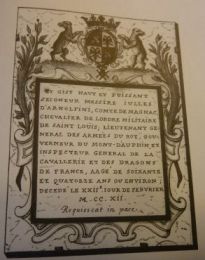 CY GIST HAVT ET PVISSANT
SEIGNEVR MESSIRE IVLLES
D'ARNOLFINI, COMTE DE MAGNAC
CHEVALIER DE LORDRE MILITAIRE
DE SAINT LOUIS, LIEVTENANT GE
NERAL DES ARMEES DV ROY, GOV
VERNEVR DV MONT-DAVPHIN ET
INSPECTEVR GENERAL DE LA
CAVALLERIE ET DES DRAGONS
DE FRANCE, AAGE DE SOIXANTE
ET QVATORZE ANS OV ENVIRON;
DECEDE LE XXIIe. IOVR DE FEBVRIER
M. CC. XII.
Requiescat in pace.